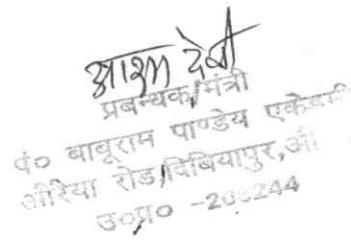 आशा देवी
प्रबन्धक/मंत्री
पं० बाबूराम पाण्डेय एकेडमी
औरैया रोड, दिबियापुर, औ
उ०प्र० -206244